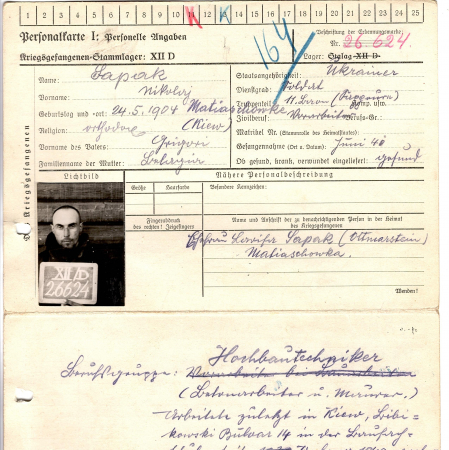 1 2 3 4 5 6 7 8 9 10 11 12 13 14 15 16 17 18 19 20 21 22 23 24 25
Personalkarte I: Personelle Angaben
Beschriftung der Erkennungsmarke:
Kriegsgefangenen-Stammlager: XII D
164
Nr. 26 624
Lager: Stalag XII D
Name: Sapak
Staatsangehörigkeit: Ukrainer
Vorname: Nikolaj
Dienstgrad: Soldat
Geburtstag und -ort: 24.5.1904 Matiaschowka
Truppenteil: Komp. usw.
Religion: orthodox (Kiew)
Zivilberuf: Berufs-Gr.:
Vorname des Vaters: Grigori
Matrikel Nr. (Stammrolle des Heimatstaates):
Familienname der Mutter:
Gefangennahme (Ort u. Datum): Juni
Ob gesund, krank, verwundet eingeliefert: gesund
Des Kriegsgefangenen
Lichtbild
Nähere Personalbeschreibung
Größe
Haarfarbe
Besondere Kennzeichen:
Fingerabdruck
des rechten! Zeigefingers
Name und Anschrift der zu benachrichtigenden Person in der Heimat
des Kriegsgefangenen
Ehefrau Sapak
Matiaschowka.
XII D
26624
Wenden!
Hochbautechniker
Berufsgruppe:
(Betonarbeiter u. Maurer.)
Arbeitete zuletzt in Kiew, Bibi-
kowski Bulwar 14 in der